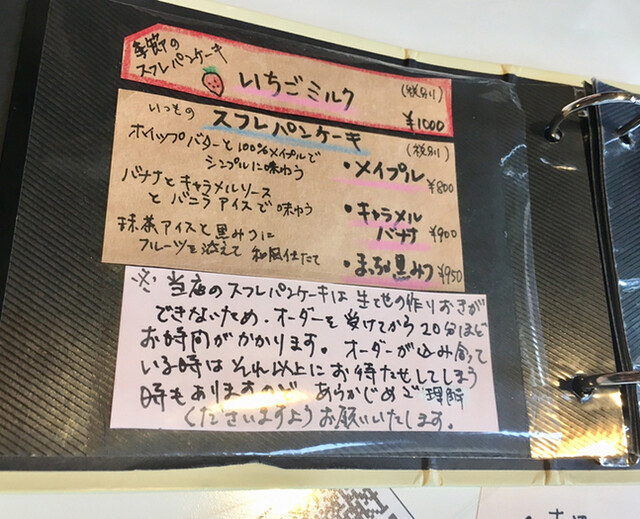 季節の
スフレパンケーキ
いちごミルク
(税別)
¥1000
いつもの
スフレパンケーキ
(税別)
ホイップバターと100%メイプルで
シンプルに味わう
・メイプル ¥800
バナナとキャラメルソース
とバニラアイスで味わう
・キャラメル
バナナ ¥900
抹茶アイスと黒みつに
フルーツを添えて 和風仕たて
・まっちゃ黒みつ ¥950
※ 当店のスフレパンケーキは生地の作りおきが
できないため、オーダーを受けてから20分ほど
お時間がかかります。オーダーが込み合って
いる時はそれ以上にお待たせしてしまう
時もありますので、あらかじめご理解
くださいますようお願いいたします。